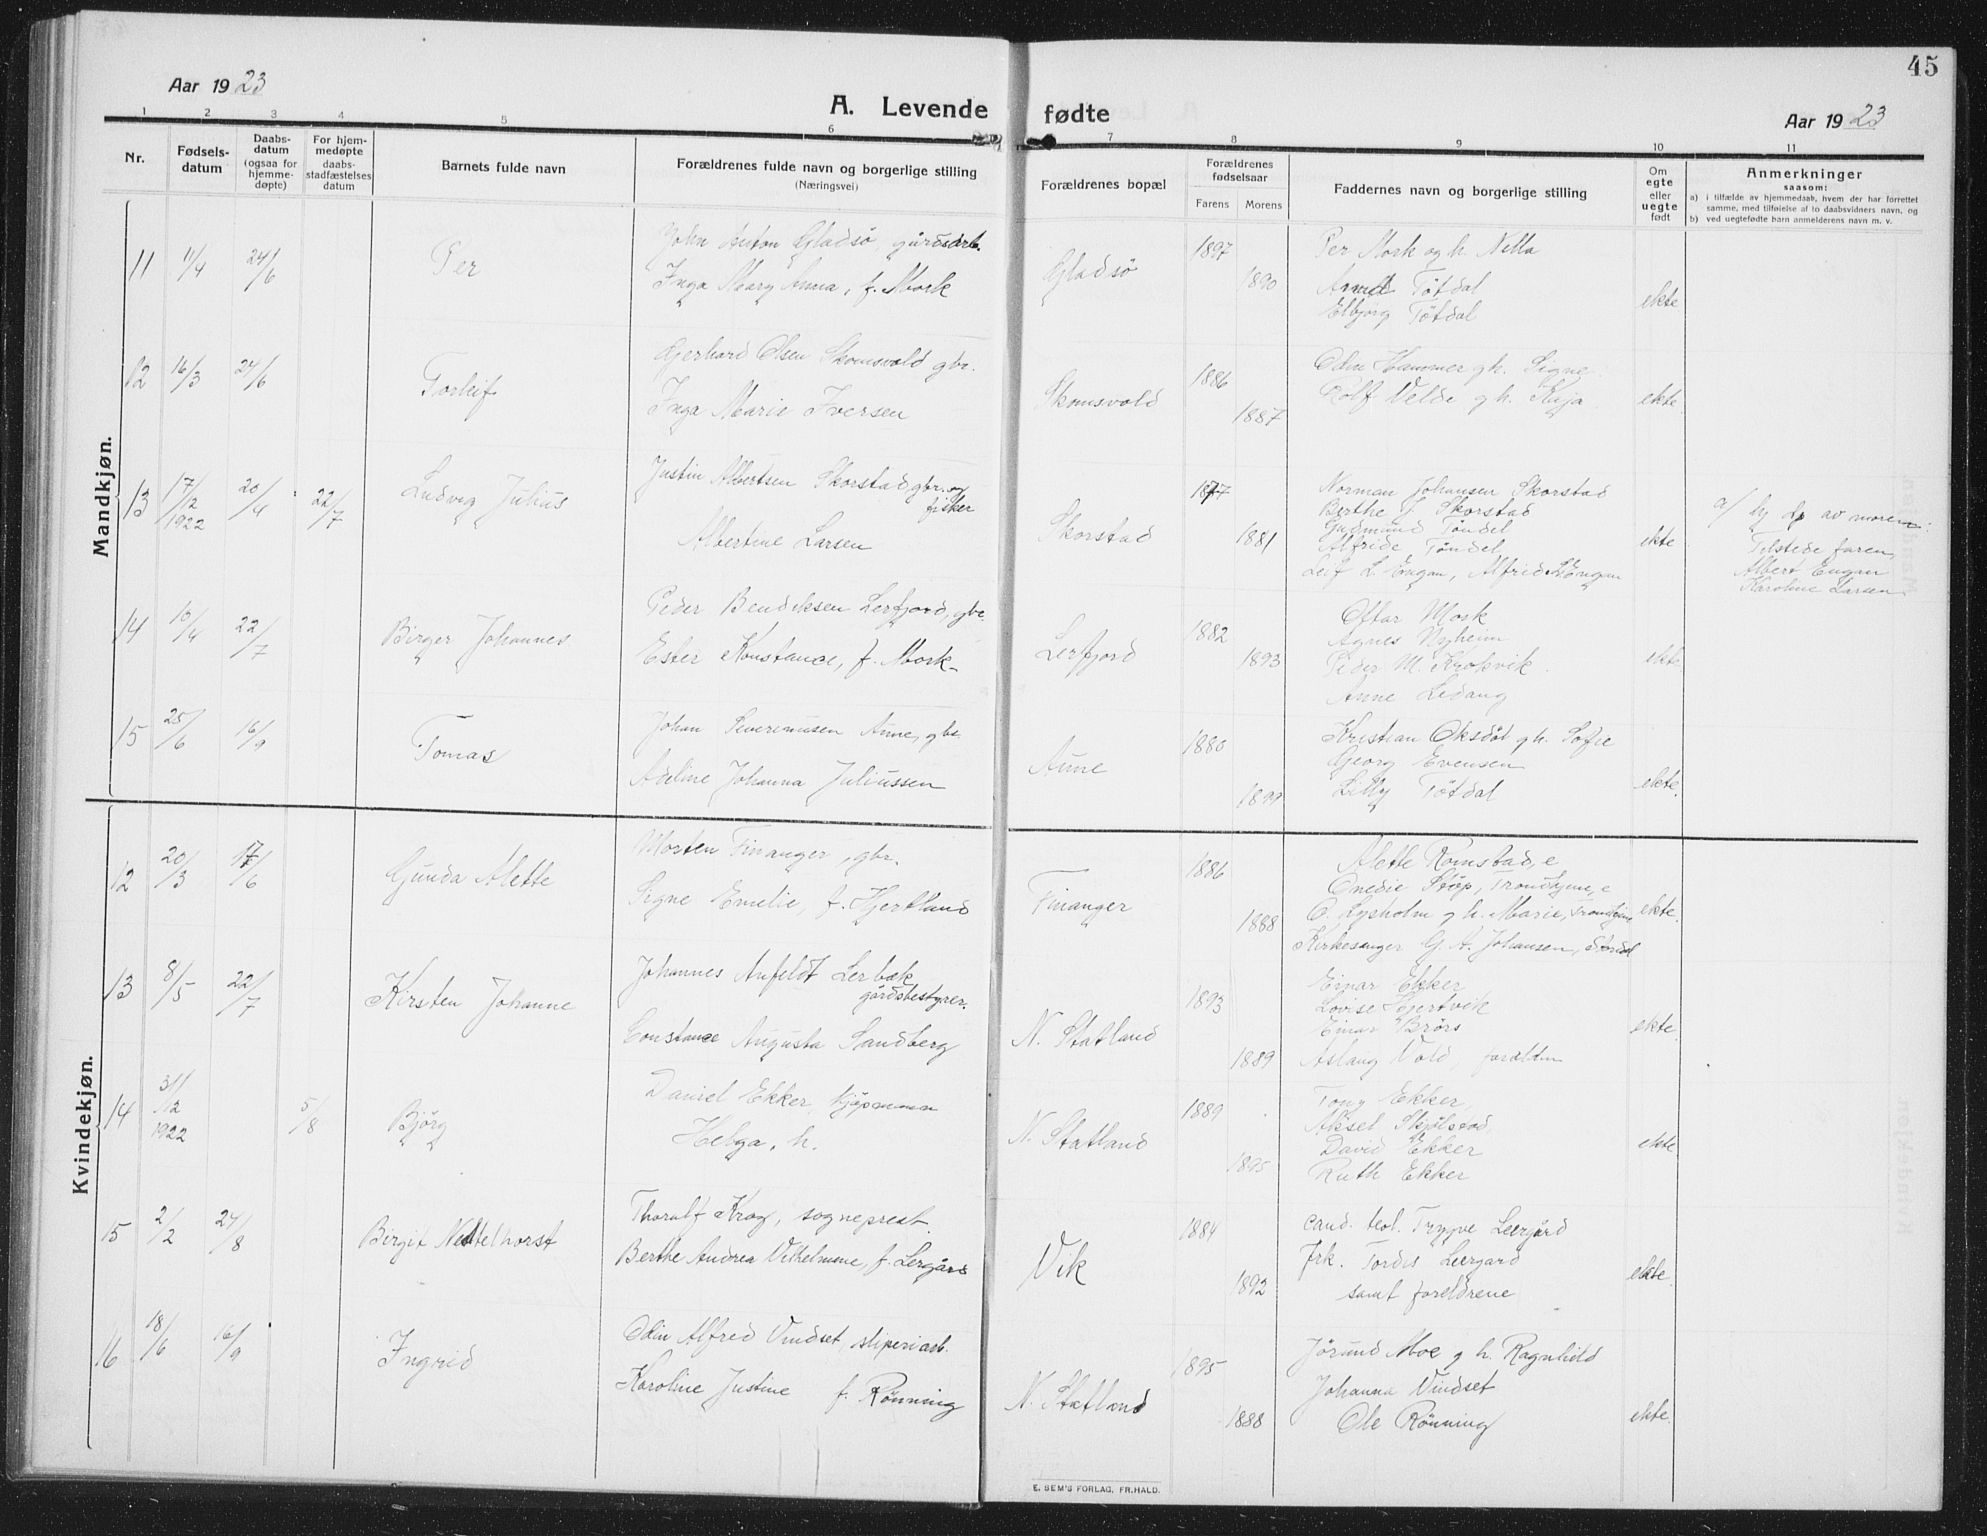 45
Aar 1923
A. Levende fødte
Aar 1923
1 2 3 4 5 6 7 8 9 10 11
Nr.
Fødsels-
datum
Daabs-
datum
(ogsaa for
hjemme-
døpte)
For hjem-
medøpte
daabs-
stadfæstelses
datum
Barnets fulde navn
Forældrenes fulde navn og borgerlige stilling
(Næringsvei)
Forældrenes bopæl
Forældrenes
fødselsaar
Farens Morens
Faddernes navn og borgerlige stilling
Om
egte
eller
uegte
født
Anmerkninger
saasom:
a) i tilfælde av hjemmedaab, hvem der har forrettet
samme, med tilføielse af to daabsvidners navn, og
b) ved uegtefødte barn anmelderens navn m. v.
Mandkjøn.
11 11/4 24/6 Per
John Anton Gladsø, gårdsarb.
Inga Marg Anna, f. Mork
Gladsø 1897 1890
Per Mork og h. Nella
Tøtdal
Elbjorg Tøtdal
ekte
12 16/3 24/6 Torleif
Gerhard Olsen Skomsvold gbr.
Inga Marie Iversen
Skomsvold 1886 1887
Odin Hammer g h. Signe
Rolf Velde g h. Kaja
ekte
13 17/12 1922 20/4 22/7 Ludvig Julius
Justin Albertsen Skorstad, gbr. og
fisker
Albertine Larsen
Skorstad 1877 1881
Norman Johansen Skorstad
Berthe J. Skorstad
Gudmund Tøndel
Alfride Tøndel
Leif L. Engan, Alfrid Engan
ekte
a/ hj. dp av moren:
Tilstede faren,
Albert Engan
Karoline Larsen
14 10/4 22/7 Birger Johannes
Peder Bendiksen Lerfjord, gbr
Ester Konstance, f. Mork
Lerfjord 1882 1893
Oftar Mork
Agnes Nyheim
Peder M. Krokvik
Anne Ledang
ekte
15 25/6 16/9 Tomas
Johan Severinusen Aune, gbr.
Adeline Johanna Juliussen
Aune 1880 1899
Kristian Oksdøl g h. Sofie
Georg Evensen
Lilly Tøtdal
ekte.
Kvindekjøn.
12 20/3 17/6 Gunda Alette
Morten Finanger, gbr.
Signe Emelie, f. Hjertland
Finanger 1886 1888
Alette Romstad, e
Onedie Støp, Trondhjem, e
O. Lysholm g h. Marie, Trondhjem
Kirkesanger G. A. Johansen,
ekte.
13 8/5 22/7 Kirsten Johanne
Johannes Anfeldt Lerbæk
gårdsbestyrer.
Constance Augusta Sandberg
N. Statland 1893 1889
Einar Ekker
Lovise Hjertvik
Einar Brørs
Aslaug Vold, foreldren
ekte.
14 31/12 1922 5/8 Bjørg
Daniel Ekker, kjøpmann
Helga, h.
N. Statland 1889 1895
Tony Ekker,
Aksel Skjølstad
David Ekker
Ruth Ekker
ekte
15 2/2 24/8 Birgit Nettelhorst
Thoralf Krog, sogneprest
Berthe Andrea Vilhelmine, f. Lergård
Vik 1884 1892
cand. teol. Trygve Leergård
frk. Tordis Leergard
samt foreldrene
ekte.
16 18/6 16/9 Ingrid
Odin Alfred Vindset, sliperiarb.
Karoline Justine f. Rønning
N. Statland 1895 1888
Jørund Moe g h. Ragnhild
Johanna Vindset
Ole Rønning
ekte.
E. SEM'S FORLAG, FR.HALD.